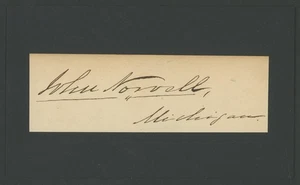 John Norvell,
Michigan.